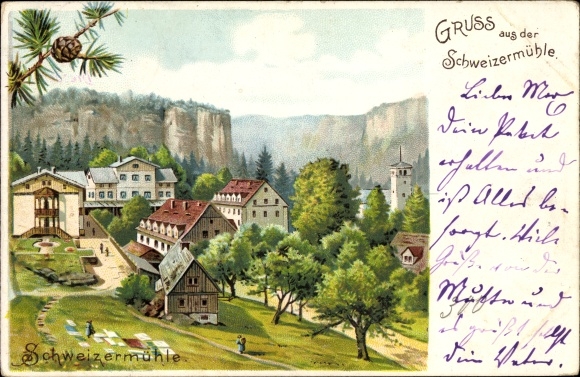 GRUSS aus der
Schweizermühle.
Lieber Max
Dein Paket
erhalten und
ist Alles be-
sorgt. Viele
Grüße von der
Mutter und
es grüßt
Dein Vater.
Schweizermühle.